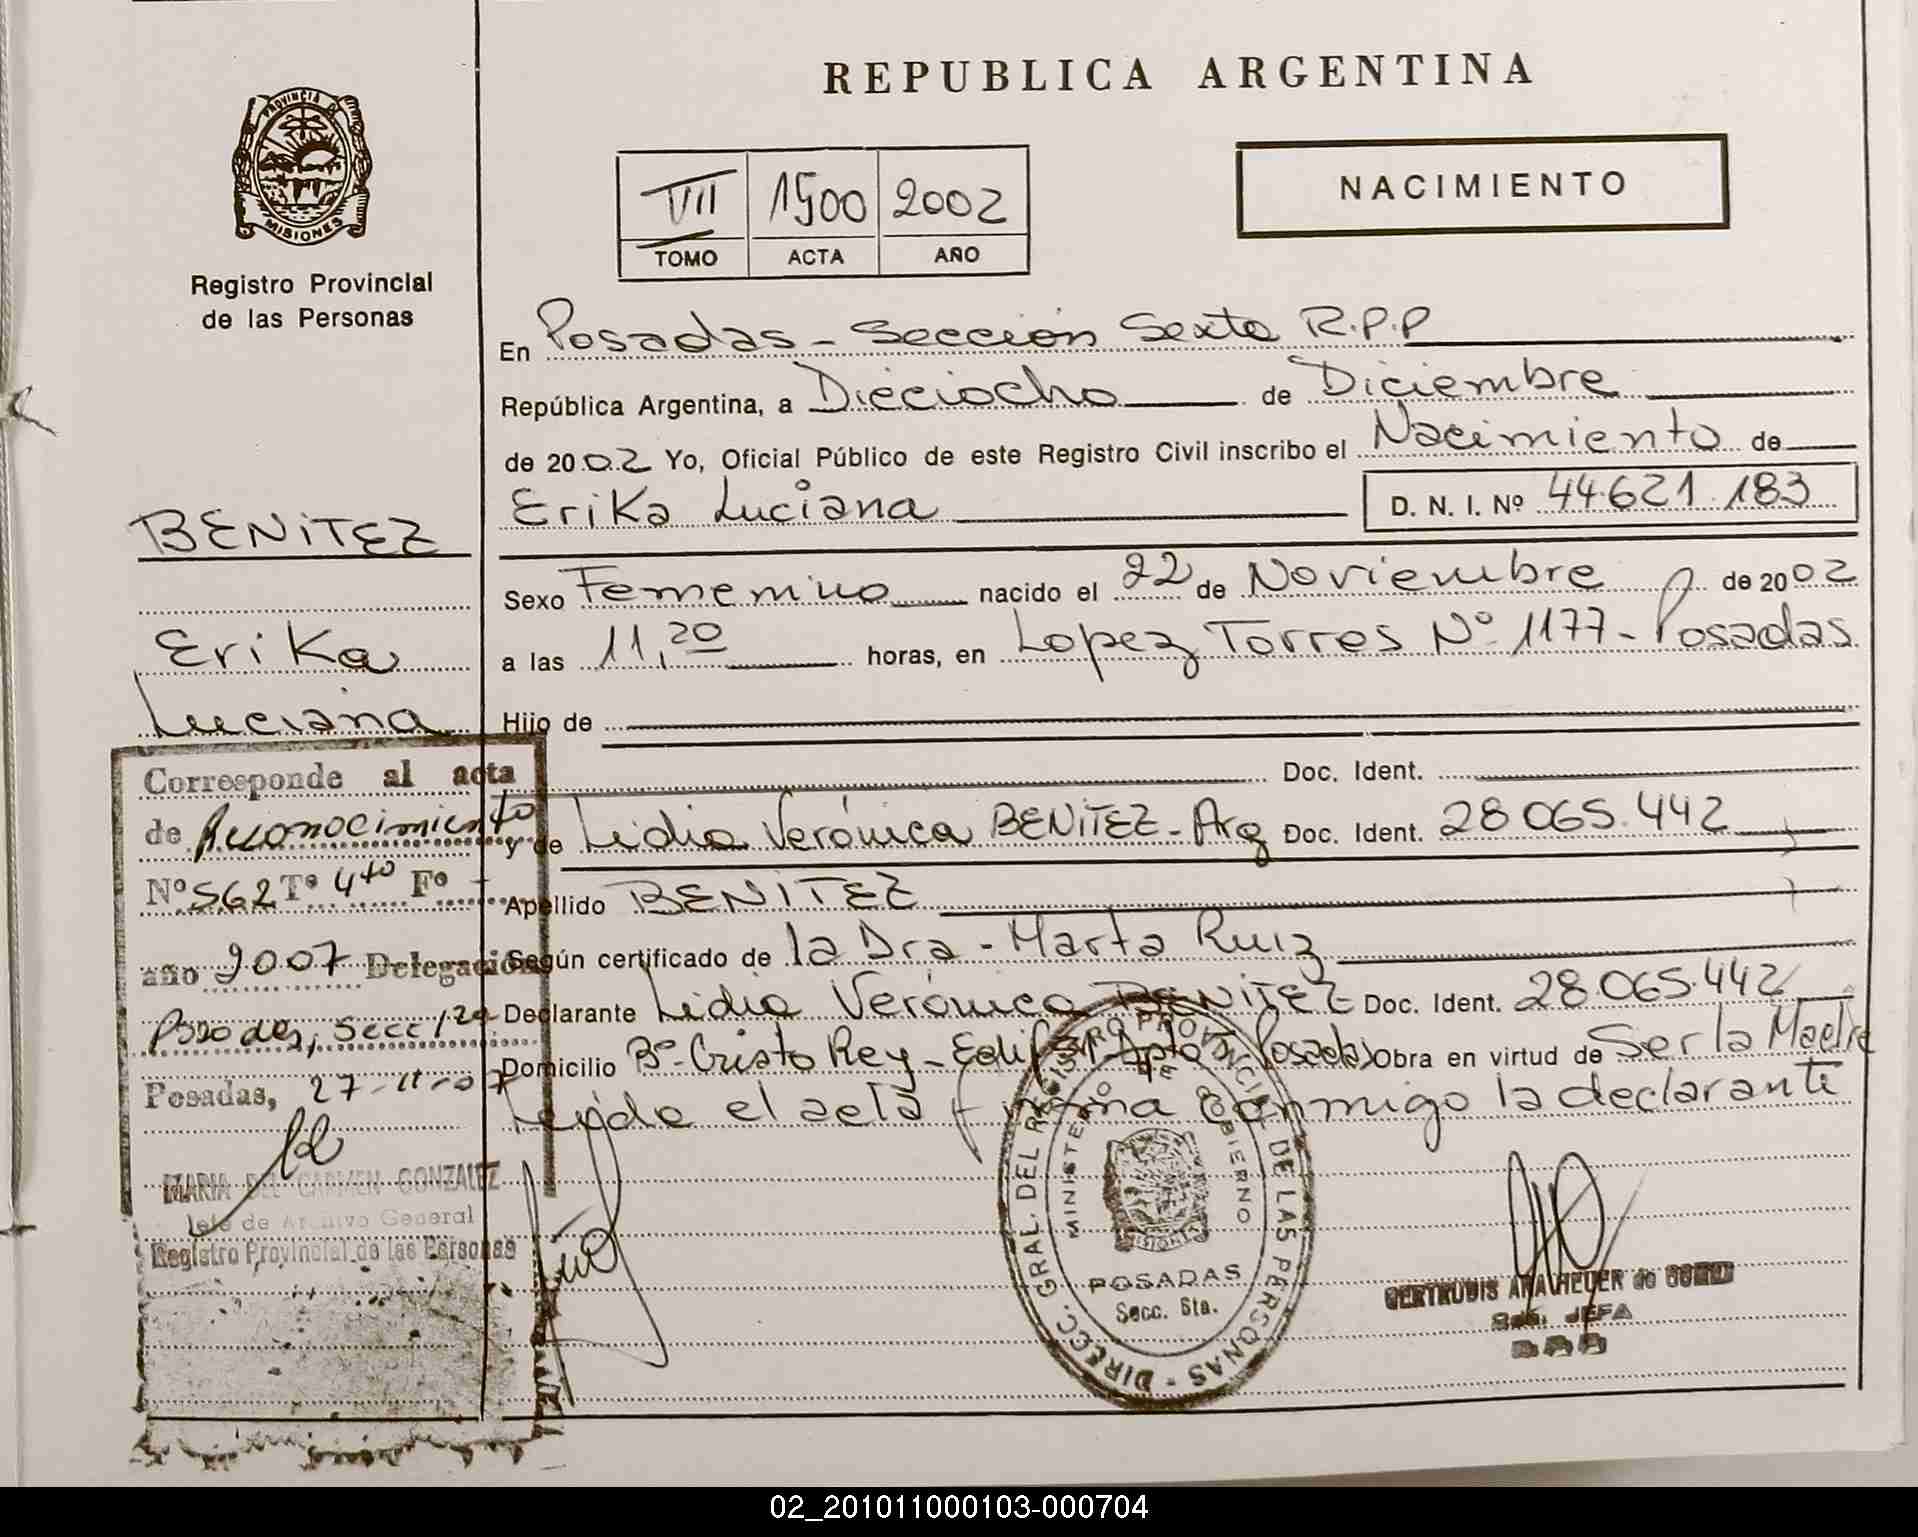 REPUBLICA ARGENTINA
PROVINCIA D
MISIONES
Registro Provincial
de las Personas
VII 1500 2002
TOMO ACTA AÑO
NACIMIENTO
En Posadas - Sección Sexta R.P.P
República Argentina, a Dieciocho de Diciembre
de 2002 Yo, Oficial Público de este Registro Civil inscribo el Nacimiento de
Erika Luciana D. N. I. Nº 44.621.183
Sexo Femenino nacido el 22 de Noviembre de 2002
a las 11,20 horas, en Lopez Torres Nº 1177 - Posadas
Hijo de
Doc. Ident.
y de Lidia Verónica BENITEZ - Arg Doc. Ident. 28.065.442
Apellido BENITEZ
Según certificado de la Dra - Marta Ruiz
Declarante Lidia Verónica BENITEZ Doc. Ident. 28.065.442
Domicilio Bº Cristo Rey - Posadas Obra en virtud de Ser la Madre
Leída el acta firma conmigo la declarante
BENITEZ
Erika
Luciana
Corresponde al acta
de Reconocimiento
Nº 562 Tº 4to Fº -
año 2007 Delegación
Posadas, Secc 1ra
Posadas, 27-11-07
MARIA DEL CARMEN GONZALEZ
Jefe de Archivo General
Registro Provincial de las Personas
DIRECC. GRAL. DEL REGISTRO PROVINCIAL DE LAS PERSONAS
MINISTERIO DE GOBIERNO
MISIONES
POSADAS
Secc. 6ta.
GERTRUDIS ANA HEUER de
JEFA
02_201011000103-000704